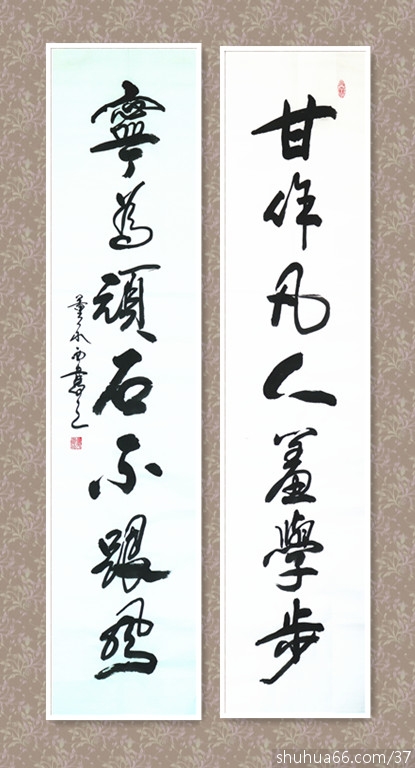 甘作凡人羞學步
寧為頑石不跟風
董永西書
shuhua66.com/37